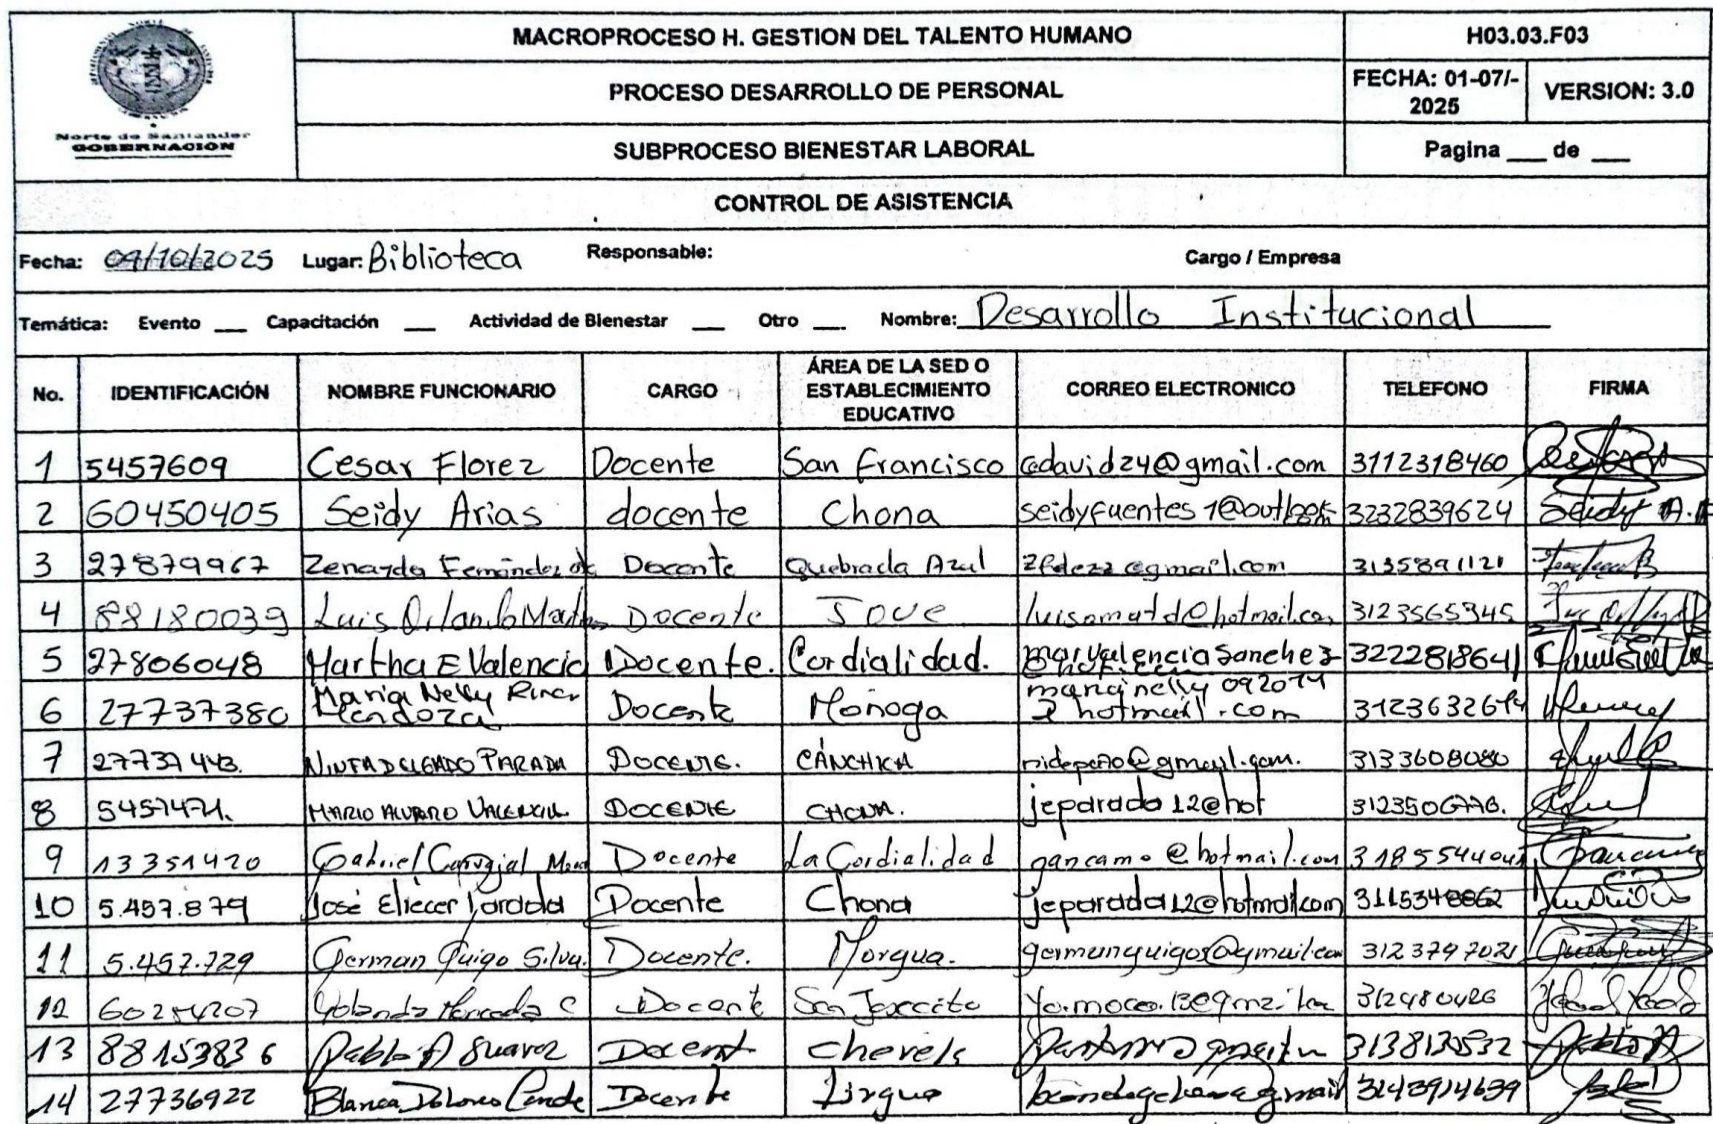 Norte de Santander
GOBERNACIÓN
MACROPROCESO H. GESTION DEL TALENTO HUMANO
H03.03.F03
PROCESO DESARROLLO DE PERSONAL
FECHA: 01-07/-
2025
VERSION: 3.0
SUBPROCESO BIENESTAR LABORAL
Pagina ___ de ___
CONTROL DE ASISTENCIA
Fecha: 09/10/2025 Lugar: Biblioteca Responsable: Cargo / Empresa
Temática: Evento ___ Capacitación ___ Actividad de Bienestar ___ Otro ___ Nombre: Desarrollo Institucional
No. IDENTIFICACIÓN NOMBRE FUNCIONARIO CARGO ÁREA DE LA SED O ESTABLECIMIENTO EDUCATIVO CORREO ELECTRONICO TELEFONO FIRMA
1 5457609 Cesar Florez Docente San Francisco cdavid24@gmail.com 3112318460
2 60450405 Seidy Arias docente Chona seidyfuentes1@outlook 3232839624 Seidy A.
3 27879967 Zenayda Fernández Docente Quebrada Azul zfdezz@gmail.com 3135891121
4 88180039 Luis Orlando Docente Jove luisomatd@hotmail.com 3123565345
5 27806048 Martha E Valencia Docente. Cordialidad. marvalenciasanchez 3222818641
6 27737380 Maria Nelly Mendoza Docente Moñoga marianelly 092014
@hotmail.com
7 DELGADO PARADA DOCENTE. CÁNCHICA 3133608080
8 MARIO ALVARO VALENCIA DOCENTE CHONA. jeparada12@hot
9 13351420 Gabriel Carvajal Docente La Cordialidad gancamo@hotmail.com
10 5.457.879 José Eliecer Parada Docente Chona jeparada12@hotmail.com 3115348862
11 5.457.729 German Quigo Silva. Docente. Morgua. germanquigos@gmail.com 3123797021
12 Yolanda C Docente 312480426
13 88153836 Pablo A Suarez Docent
14 27736922 Blanca Dolores Conde Docente 3143914639